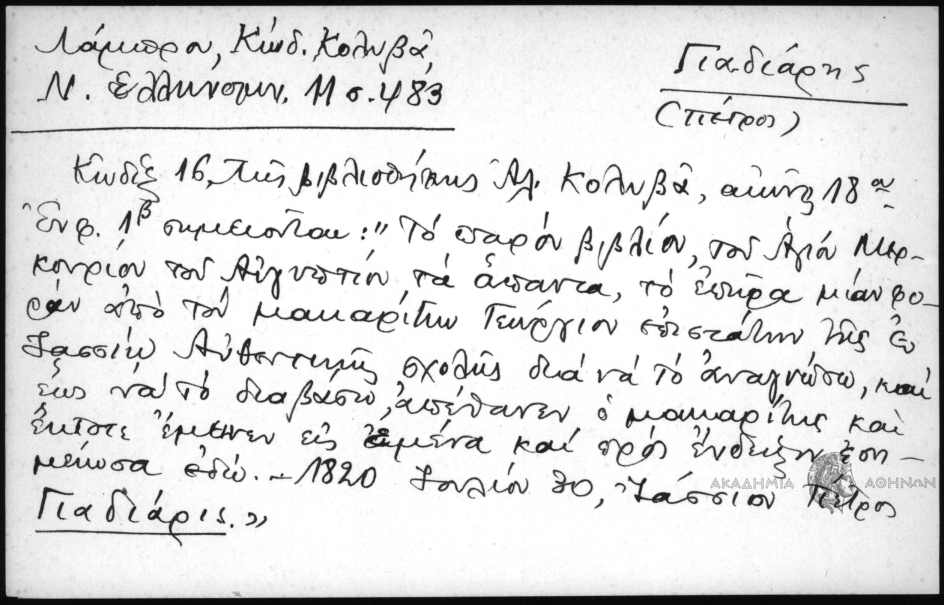 Λάμπρου, Κώδ. Κολυβᾶ,
Ν. Ἑλληνομν. 11 σ. 483
Γιαδιάρης
(Πέτρος)
Κῶδιξ 16, τῆς βιβλιοθήκης Ἀλ. Κολυβᾶ, αἰῶνος 18ου
Ἐν φ. 1β σημειοῦται: "Τὸ παρὸν βιβλίον, τοῦ Ἁγίου Μερ-
κουρίου τοῦ Αἰγυπτίου τὰ ἅπαντα, τὸ ἐπῆρα μίαν φο-
ρὰν ἀπὸ τὸν μακαρίτην Γεώργιον ἐπιστάτην τῆς ἐν
Ἰασσίῳ Αὐθεντικῆς σχολῆς διὰ νὰ τὸ ἀναγνώσω, καὶ
ἕως νὰ τὸ διαβάσω, ἀπέθανεν ὁ μακαρίτης καὶ
ἔκτοτε ἔμεινεν εἰς ἐμένα καὶ πρὸς ἔνδειξιν ἐση-
μείωσα ἐδῶ. – 1820 Ἰουλίου 30, Ἰάσσιον Πέτρος
Γιαδιάρις.»
ΑΚΑΔΗΜΙΑ ΑΘΗΝΩΝ